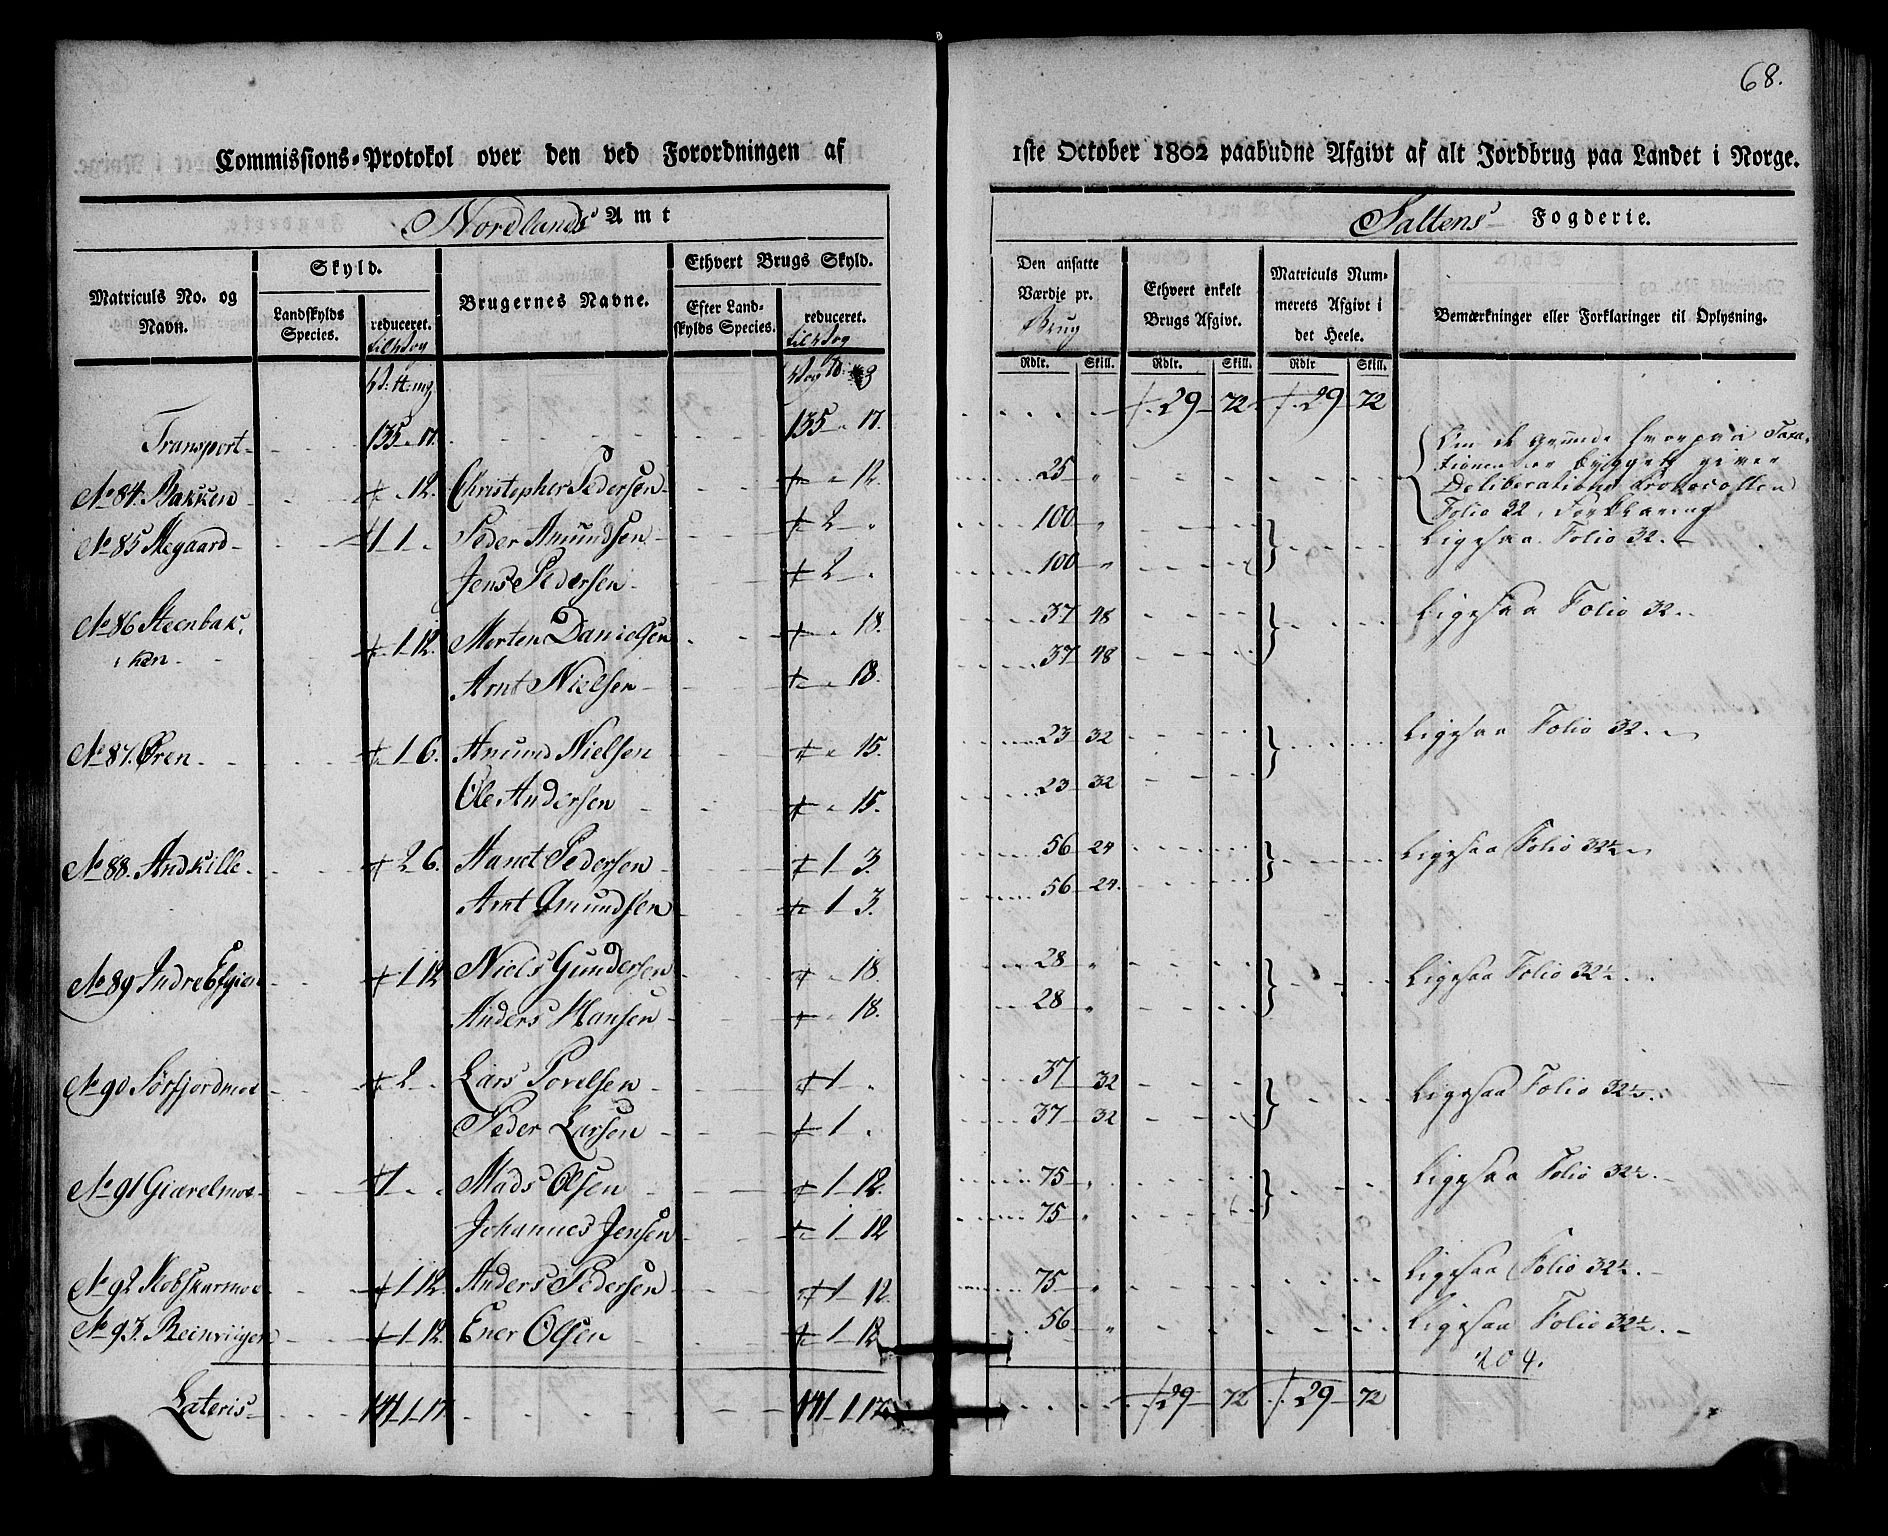 68.
Commissions-Protokol over den ved Forordningen af 1ste October 1802 paabudne Afgivt af alt Jordbrug paa Landet i Norge.
Nordlands Amt
Saltens Fogderie.
Matriculs No. og Navn.
Skyld.
Landskylds Species.
reduceret.
Brugernes Navne.
Ethvert Brugs Skyld.
Efter Landskylds Species.
reduceret.
Den ansatte Værdie pr. Brug
Rdlr. Skill.
Ethvert enkelt Brugs Afgivt.
Rdlr. Skill.
Matriculs Nummerets Afgivt i det Heele.
Rdlr Skill.
Bemærkninger eller Forklaringer til Oplysning.
Transport 135 " 17. 135 " 17. 29 72 29 72
No 84. Bakken " 12. Christopher Pedersen " 12. 25 " Om de Grunde hvorpaa Taxa-
tionen er bygget giver
Deliberations Protocollen
Folio 32, Forklaring
No 85 Aegaard 1 1 " Peder Amundsen 2 " 100 " Ligesaa Folio 32.
Jens Pedersen 2 " 100 "
No 86 Steenbak- 1 12. Morten Danielsen " 18. 37 48 Ligesaa Folio 32.
ken Arnt Nielsen " 18. 37 48
No 87. Øren 1 6. Amund Nielsen " 15. 23 32 Ligesaa Folio 32.
Ole Andersen " 15. 23 32
No 88. Andkille 2 6. Hanet Pedersen 1 3. 56 24 Ligesaa Folio 32½
Arnt Amundsen 1 3. 56 24.
No 89 Indre 1 12 Niels Gundersen " 18. 28 " Ligesaa Folio 32½
Anders Hansen " 18. 28 "
No 90 Sørfjordmoe 2 " Lars Povelsen 1 " 37 32 Ligesaa Folio 32½.
Peder Larsen 1 " 37 32
No 91 Giærelmoe 1 " " Mads Olsen 1 12. 75 " Ligesaa Folio 32½.
Johannes Jensen 1 12 75 "
No 92 Kobskarmoe 1 12. Anders Pedersen 1 12. 75 " Ligesaa Folio 32½.
No 93. Reinviigen 1 12. Ener Olsen 1 12 56 " Ligesaa Folio 32½.
204.
Lateris 141 1 17. 141 1 17. 29 72 29 72